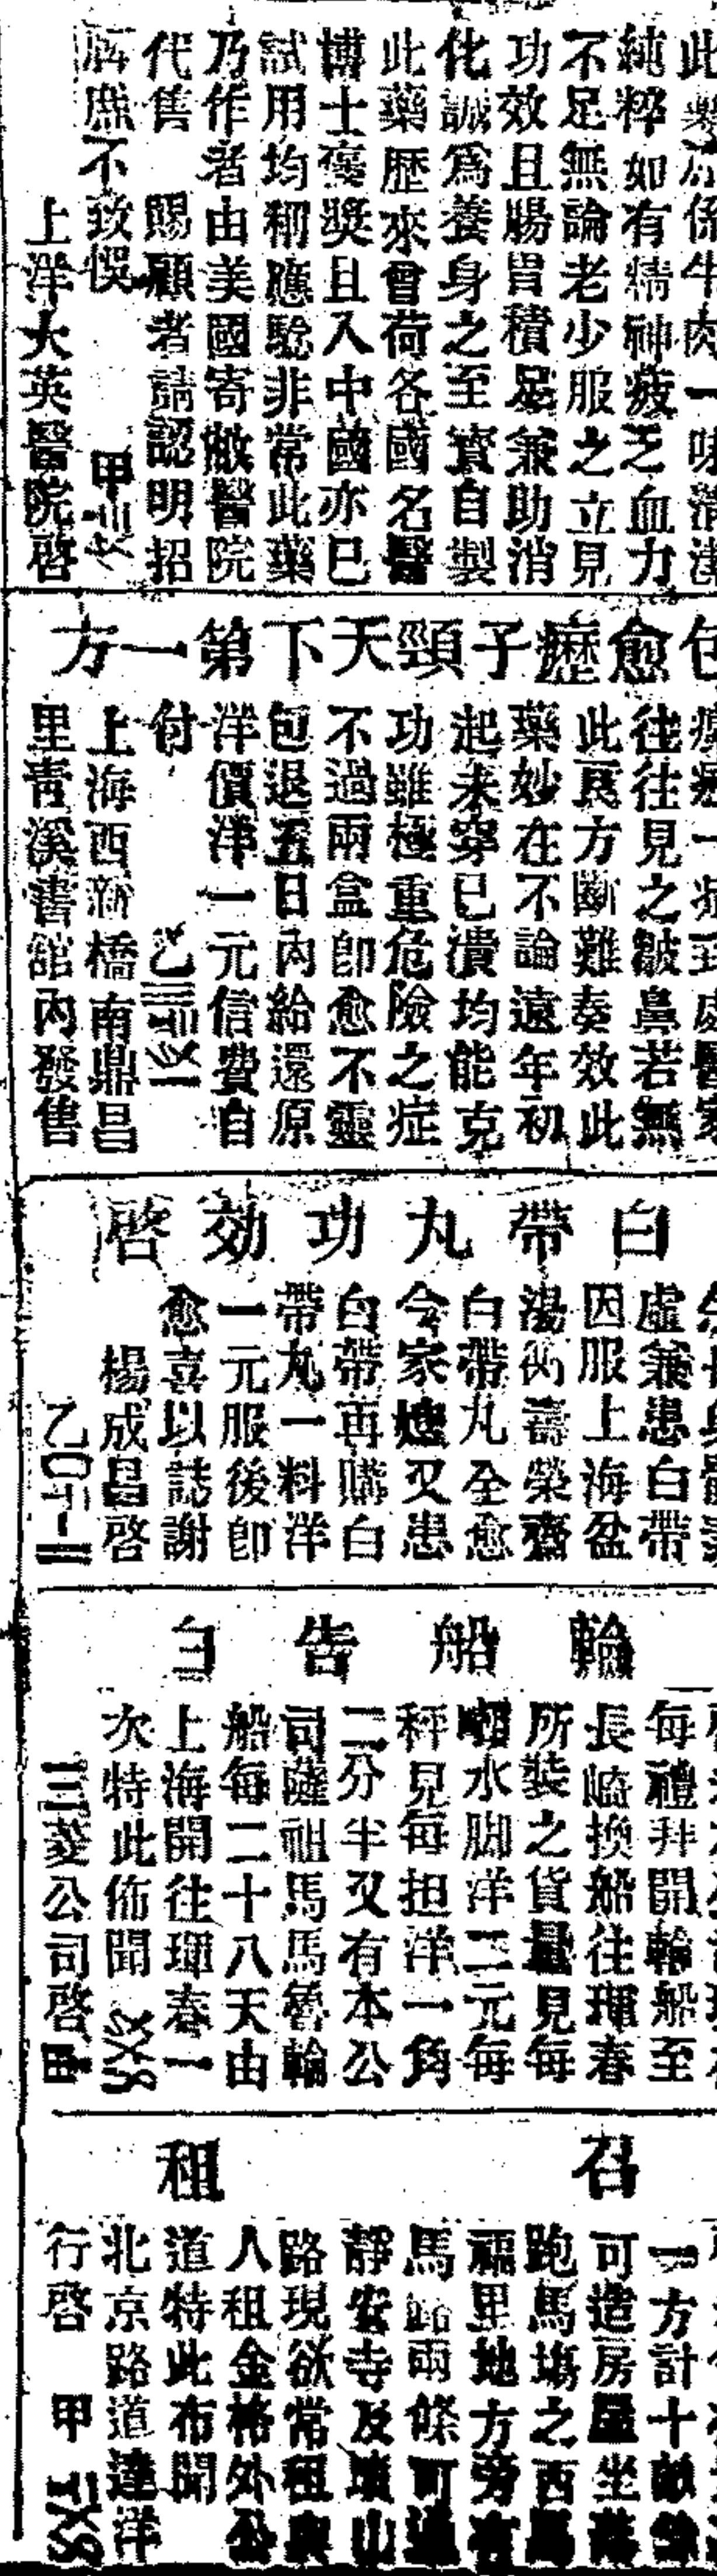 此藥亦係牛肉一味清潔
純粹如有精神疲乏血力
不足無論老少服之立見
功效且腸胃積足兼助消
化誠爲養身之至寳自製
此藥歷來曾荷各國名醫
博士襃奬且入中國亦已
試用均稱應騐非常此藥
乃作者由美國寄敝醫院
代售 賜顧者請認明招
牌庶不致悞 甲
上洋大英醫院啓
包愈癧子頸天下第一方
癧一症到處醫家
往往見之皺鼻若無
此良方斷難奏效此
藥妙在不論遠年初
起未穿已潰均能克
功雖極重危險之症
不過兩盒卽愈不靈
包退五日內給還原
洋價洋一元信費自
付 乙
上海西新橋南鼎昌
里靑溪書舘內發售
白帶丸功効啓
虛兼患白帶
因服上海盆
湯衖壽榮齋
白帶丸全愈
今家嫂又患
白帶再購白
帶丸一料洋
一元服後卽
愈喜以誌謝
楊成昌啓
乙
輪船告白
每禮拜開輪船至
長崎換船往琿春
所裝之貨量見每
噸水脚洋二元每
秤見每担洋一角
二分半又有本公
司薩祖馬馬魯輪
船每二十八天由
上海開往琿春一
次特此佈聞
三菱公司啓
召租
一方計十畝
可造房屋坐落
跑馬塲之西馬
福里地方旁有
馬路兩條可通
靜安寺及
路現欲常租與
人租金格外公
道特此布聞
北京路道達洋
行啓 甲